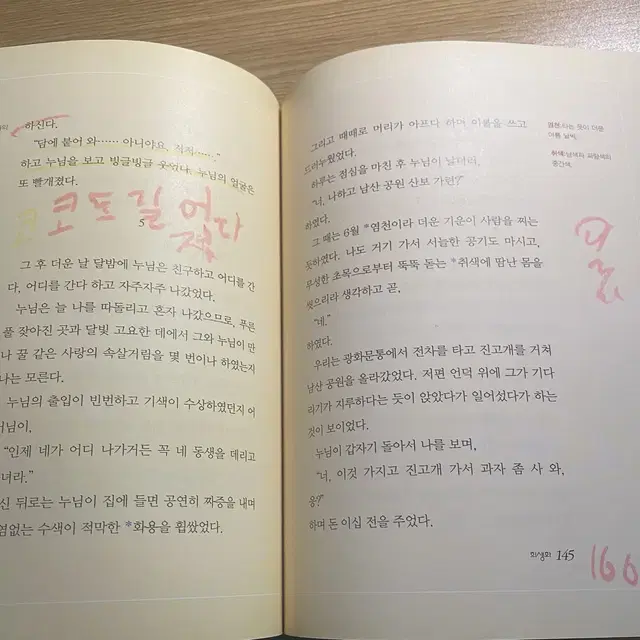 하진다.
"담에 붙어 와…… 아니야요, 저저……"
하고 누님을 보고 빙글빙글 웃었다. 누님의 얼굴은
또 빨개졌다.
코 또 길 어다
적
5
그 후 더운 날 달밤에 누님은 친구하고 어디를 간
다, 어디를 간다 하고 자주자주 나갔었다.
누님은 늘 나를 따돌리고 혼자 나갔으므로, 푸른
풀 잦아진 곳과 달빛 고요한 데에서 그와 누님이 만
나 꿀 같은 사랑의 속살거림을 몇 번이나 하였는지
나는 모른다.
누님의 출입이 빈번하고 기색이 수상하였던지 어
머님이,
"인제 네가 어디 나가거든 꼭 네 동생을 데리고
녀라."
신 뒤로는 누님이 집에 들면 공연히 짜증을 내며
염없는 수색이 적막한 *화용을 휩쌌었다.
그리고 때때로 머리가 아프다 하며 이불을 쓰고
드러누웠었다.
하루는 점심을 마친 후 누님이 날더러,
"너, 나하고 남산 공원 산보 가련?"
하였다.
그 때는 6월 *염천이라 더운 기운이 사람을 찌는
듯하였다. 나도 거기 가서 서늘한 공기도 마시고,
무성한 초목으로부터 뚝뚝 돋는 *취색에 땀난 몸을
씻으리라 생각하고 곧,
"네."
하였다.
우리는 광화문통에서 전차를 타고 진고개를 거쳐
남산 공원을 올라갔었다. 저편 언덕 위에 그가 기다
리기가 지루하다는 듯이 앉았다가 일어섰다가 하는
것이 보이었다.
누님이 갑자기 돌아서 나를 보며,
"너, 이것 가지고 진고개 가서 과자 좀 사 와,
응?"
하며 돈 이십 전을 주었다.
염천:타는 듯이 더운
여름 날씨.
취색:남색과 파랑색의
중간색.
희생화 145
166